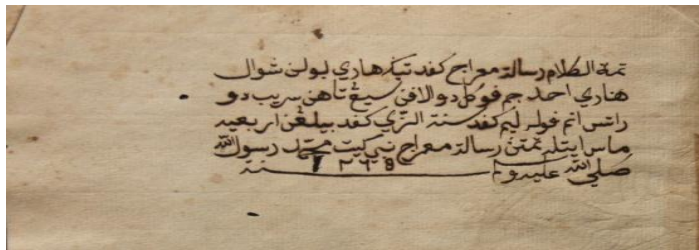 تمة الكلام رسالة معراج كفد تيݢ هاري بولن شوال
هناري احد جم فوكل دوالافن سيڠ تاهن سريب دو
راتس انم فوله ليم كفد سنة الزي كفد بيلڠن اربعيه
ماس ايتله تمتن رسالة معراج نبي كيت محمد رسول الله
صلي الله عليه وسلم سنة ١٢٦٥